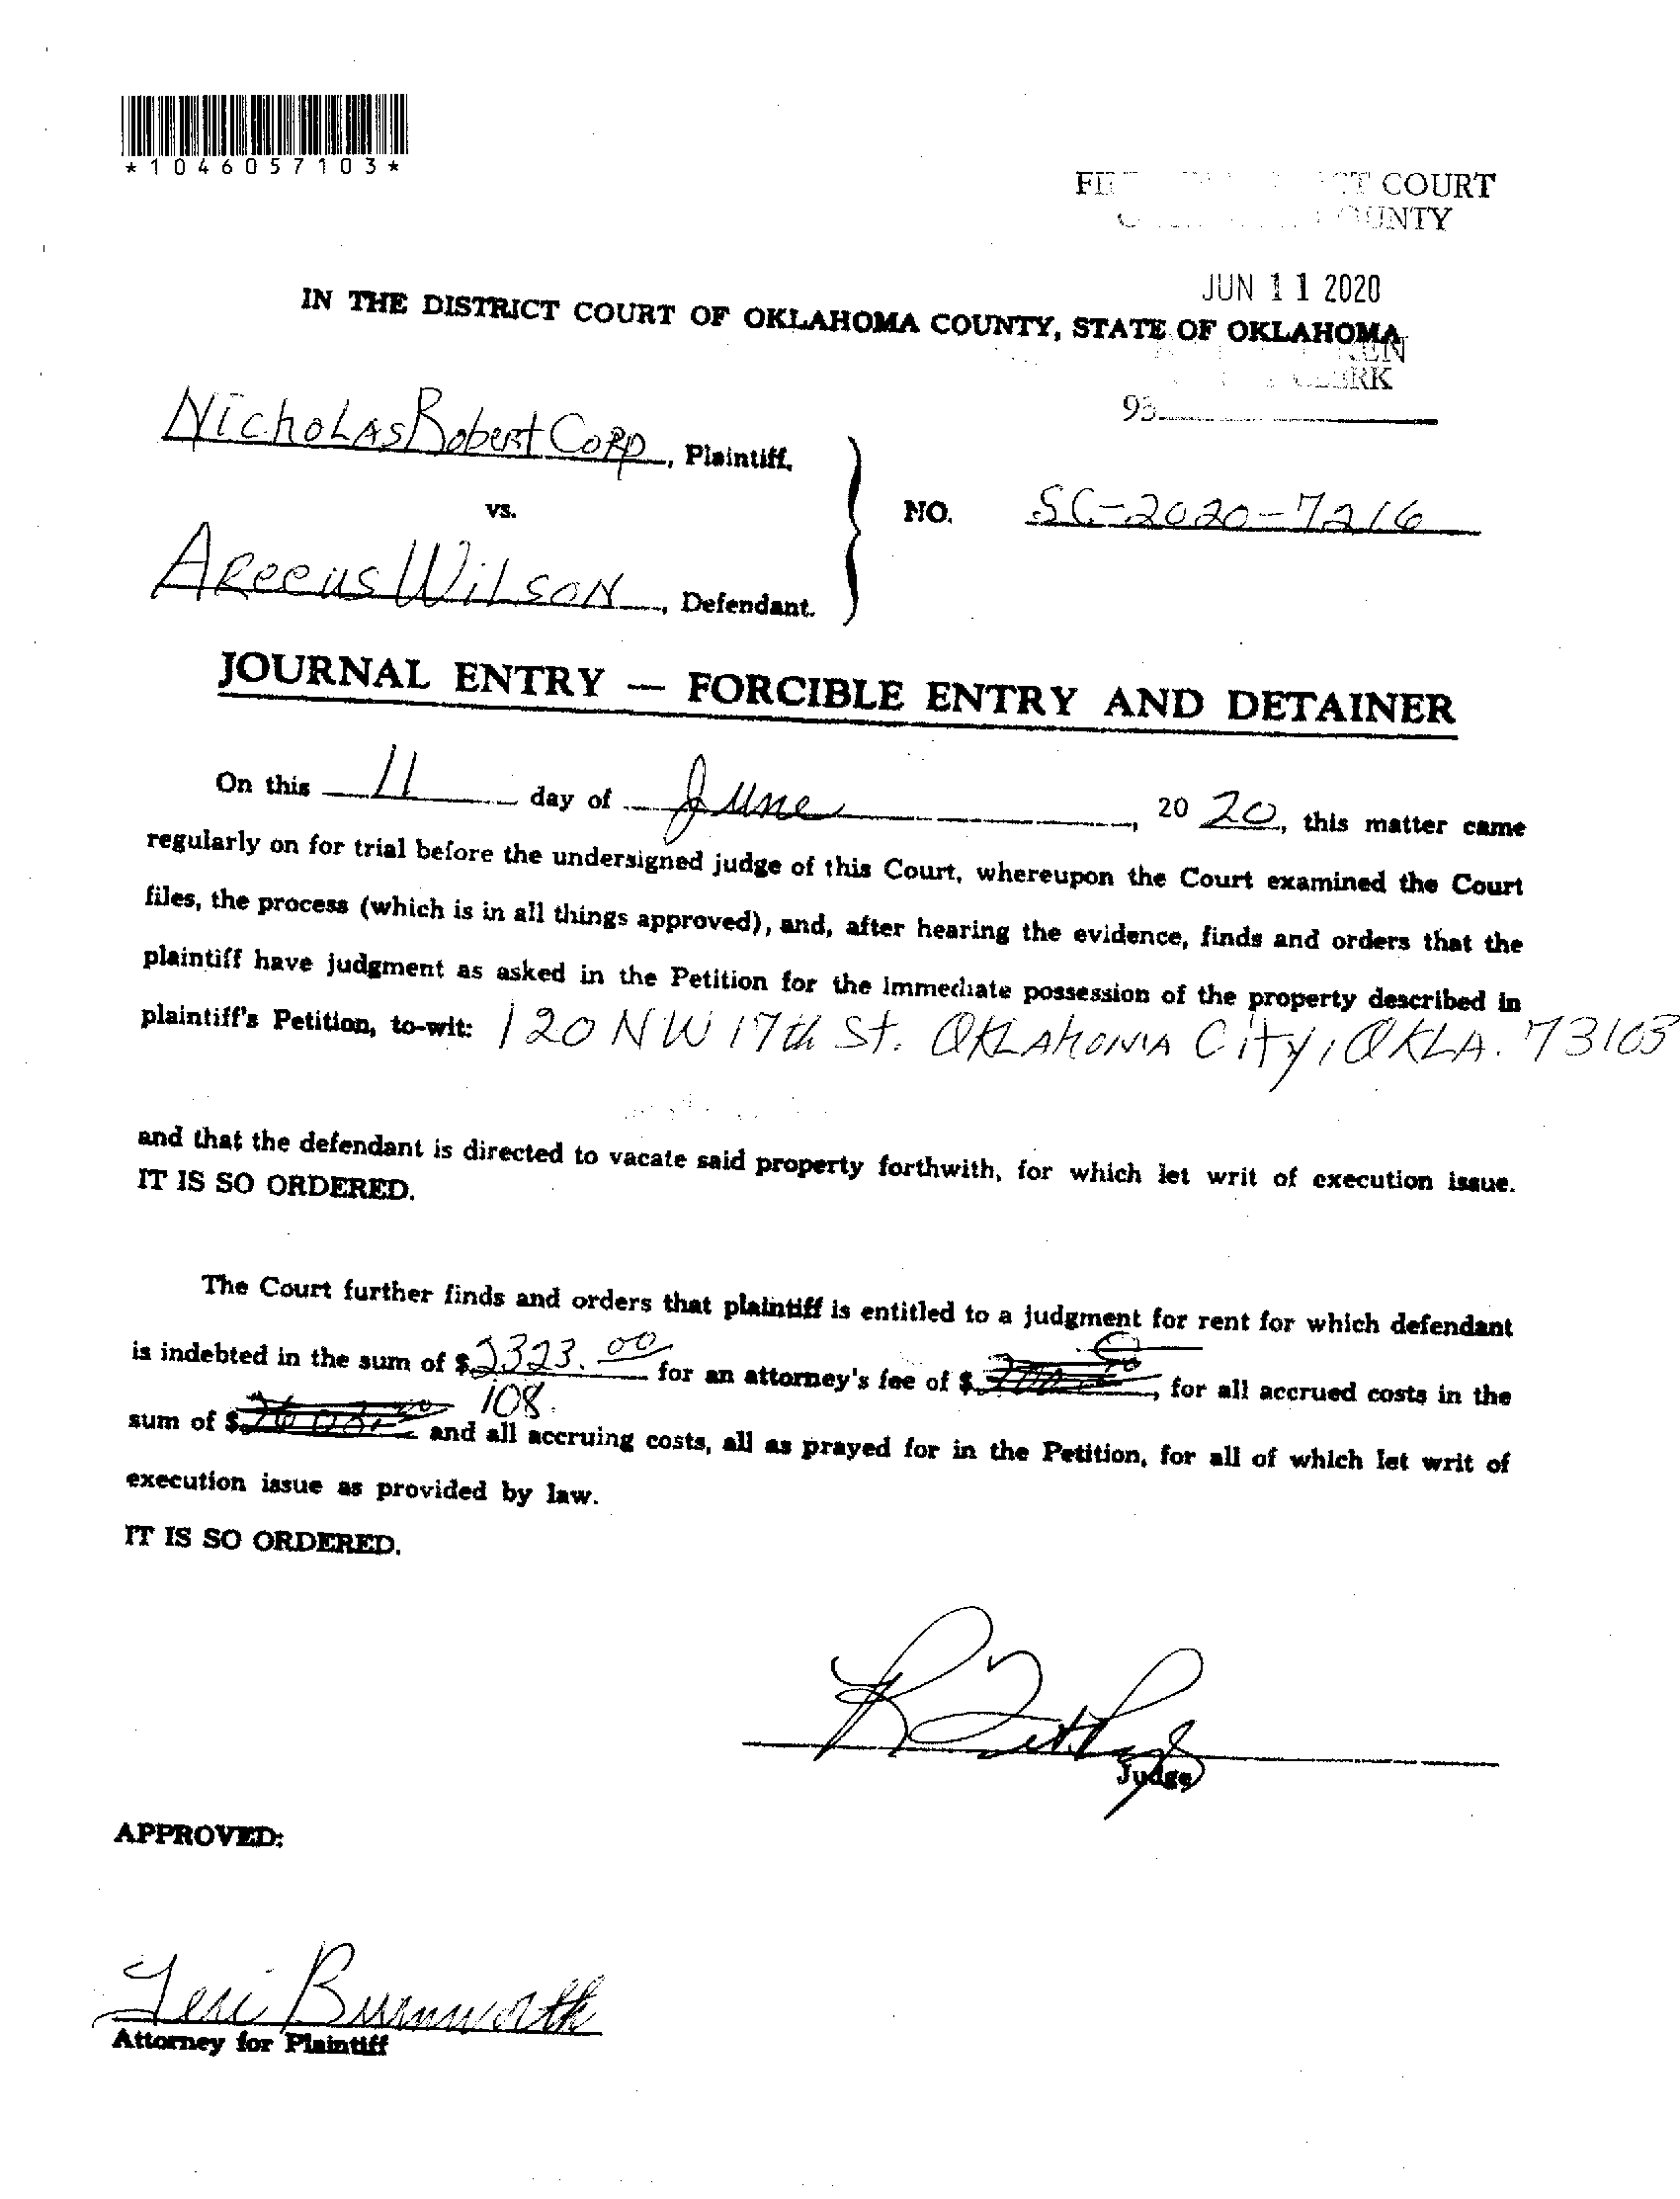 *1046057103*
COURT
JUN 11 2020
IN THE DISTRICT COURT OF OKLAHOMA COUNTY, STATE OF OKLAHOMA
Nicholas Robert Corp, Plaintiff,
vs.
NO. SC-2020-7216
Areeus Wilson, Defendant.
JOURNAL ENTRY — FORCIBLE ENTRY AND DETAINER
On this 11 day of June, 20 20, this matter came
regularly on for trial before the undersigned judge of this Court, whereupon the Court examined the Court
files, the process (which is in all things approved), and, after hearing the evidence, finds and orders that the
plaintiff have judgment as asked in the Petition for the immediate possession of the property described in
plaintiff's Petition, to-wit: 120 NW 17th St. Oklahoma City, Okla. 73103
and that the defendant is directed to vacate said property forthwith, for which let writ of execution issue.
IT IS SO ORDERED.
The Court further finds and orders that plaintiff is entitled to a judgment for rent for which defendant
is indebted in the sum of $2323.00 for an attorney's fee of $, for all accrued costs in the
sum of $ 108. and all accruing costs, all as prayed for in the Petition, for all of which let writ of
execution issue as provided by law.
IT IS SO ORDERED.
Judge
APPROVED:
Teri Burnworth
Attorney for Plaintiff